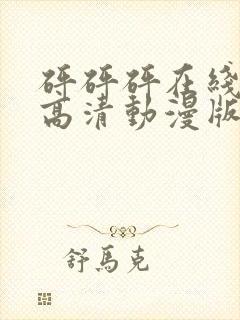 砰砰砰在綫
高清動漫版
舒馬克